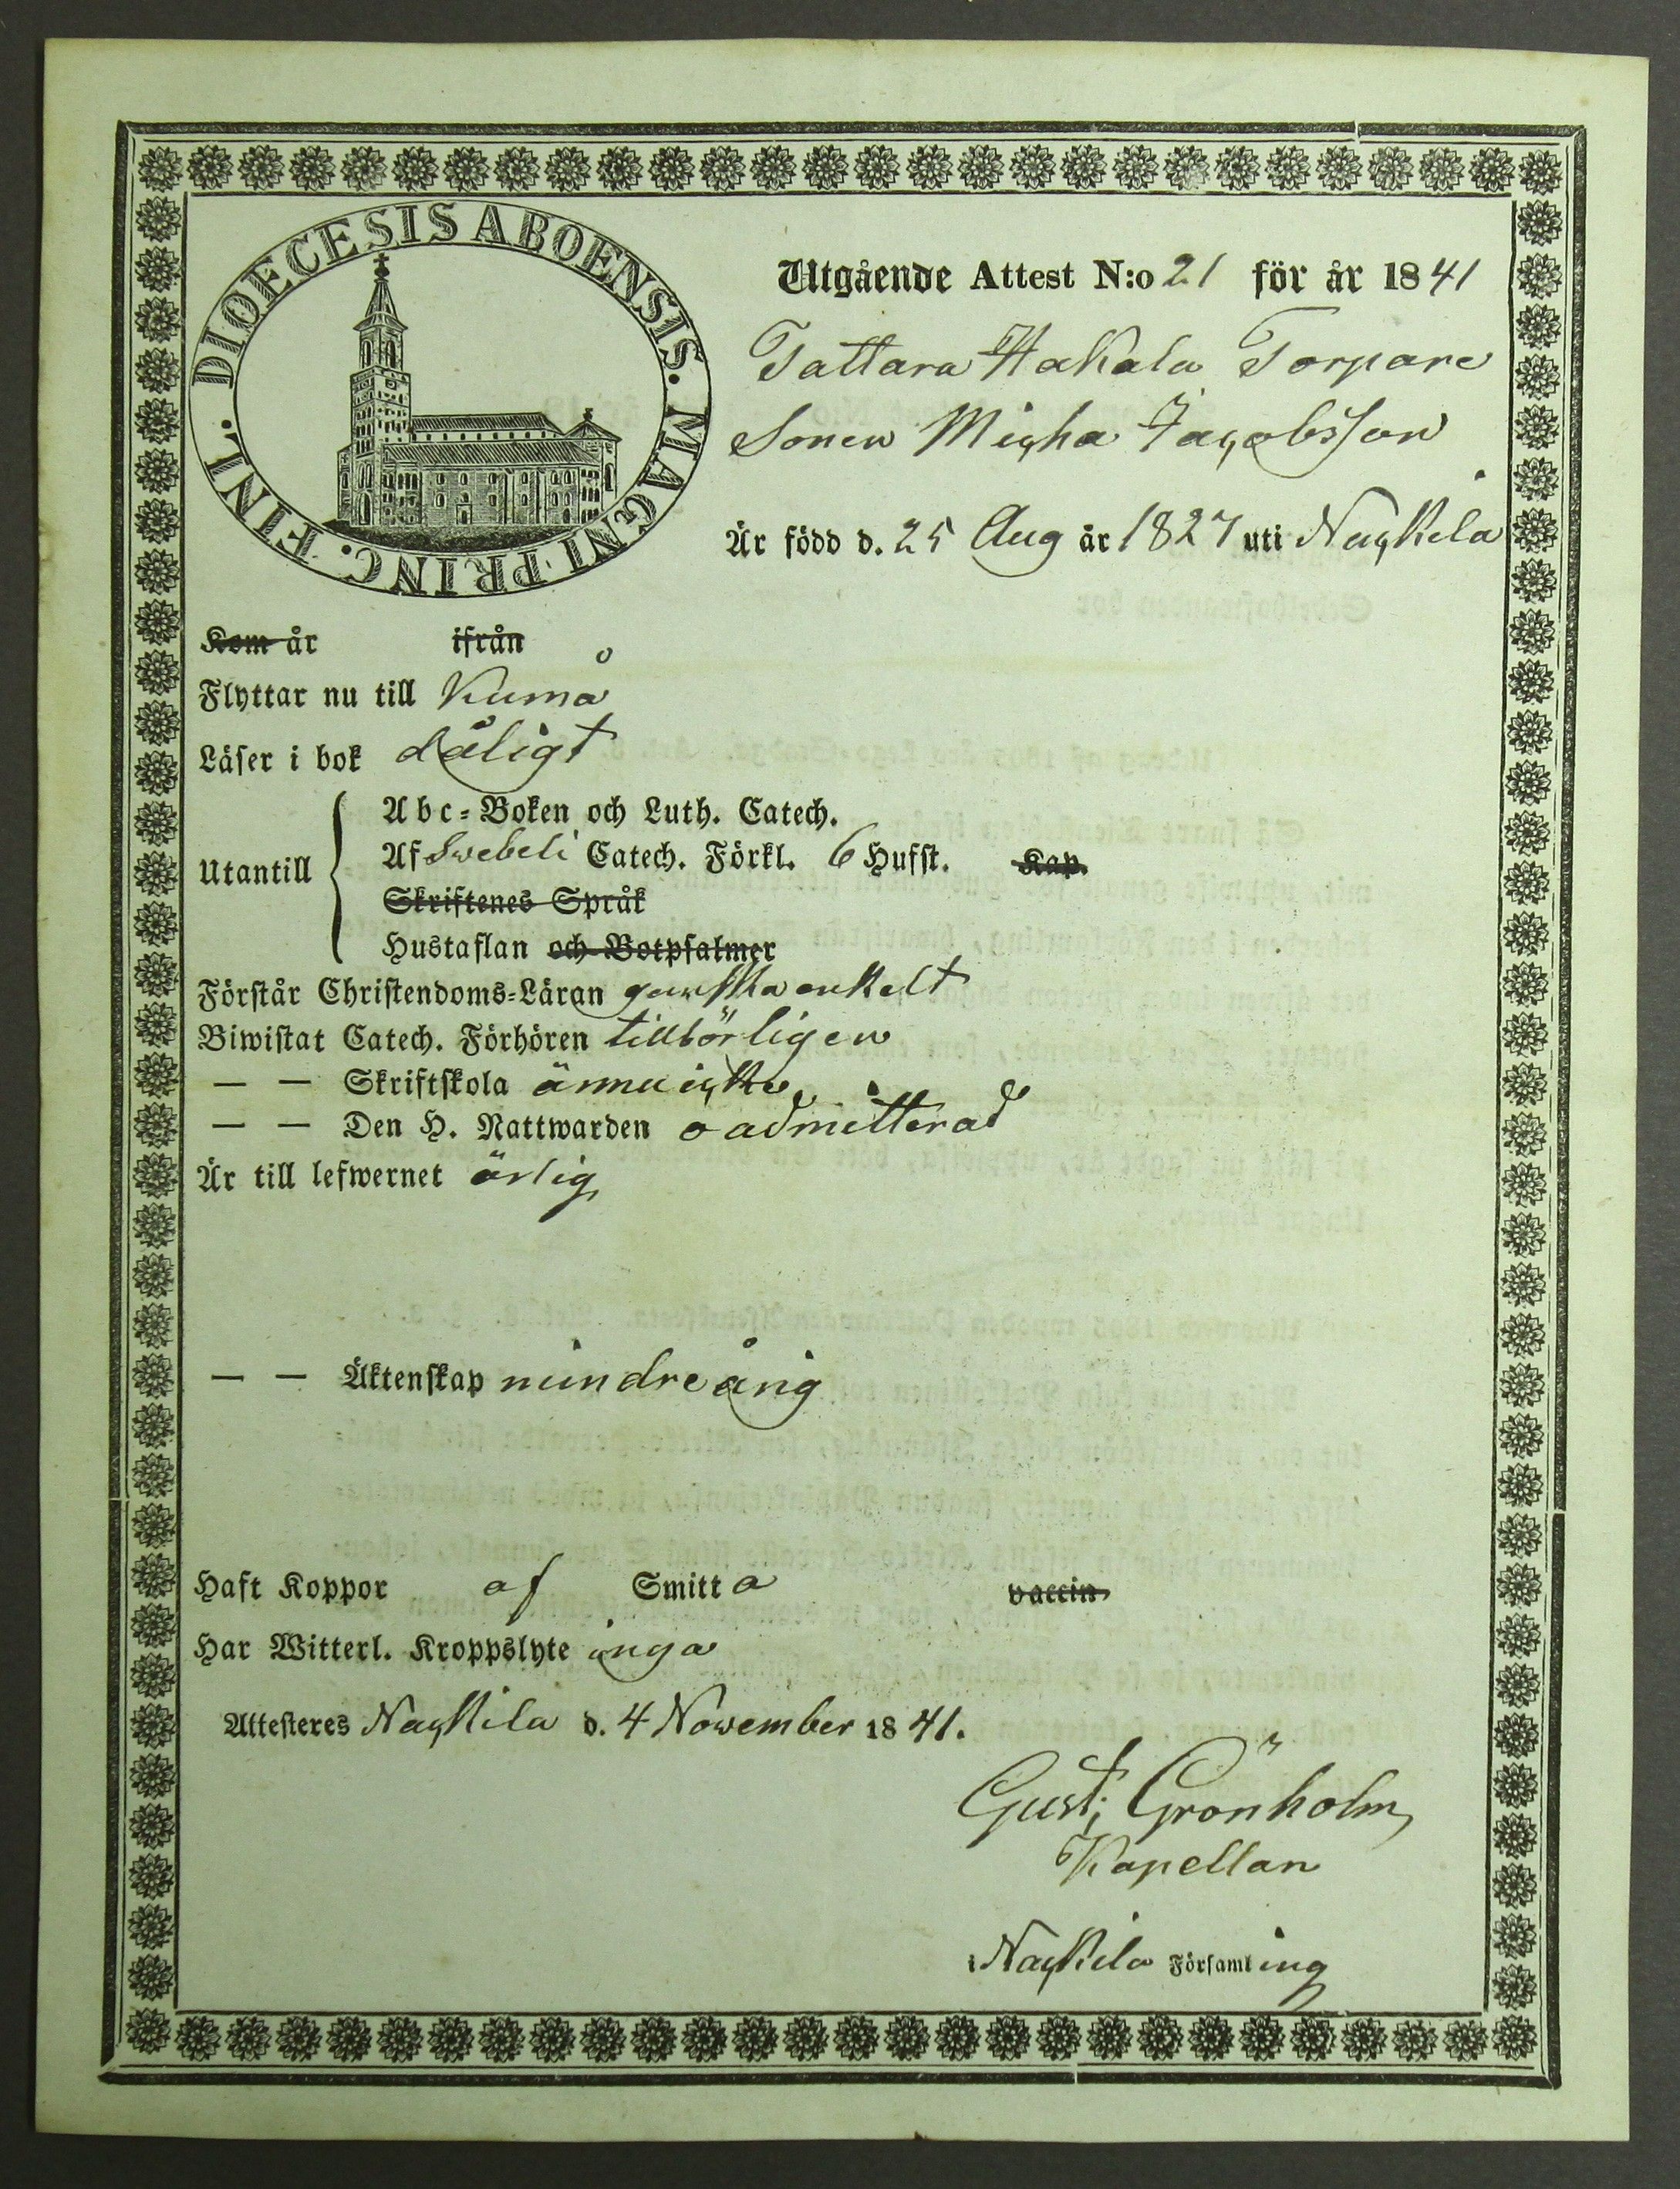 DIOECESIS ABOENSIS. MAGNI PRINC. FINL.
Utgående Attest N:o 21 för år 1841
Tattara Hakala Torpare
Sonen Micha Jacobsson
Är född d. 25 Aug år 1827 uti Nackila
Kom år ifrån
Flyttar nu till Kumå
Läser i bok dåligt
Utantill
Abc-Boken och Luth. Catech.
Af Swebeli Catech. Förkl. 6 Hufst. Kap.
Skriftenes Språk
Hustaflan och Botpsalmer
Förstår Christendoms-Läran ganska enkelt
Biwistat Catech. Förhören tillbörligen
— — Skriftskola ännu icke
— — Den H. Nattwarden oadmitterad
Är till lefwernet ärlig
— — Äktenskap minderårig
Haft Koppor af Smitta vaccin
Har Witterl. Kroppslyte inga
Attesteres Nackila d. 4 November 1841.
Gust: Grönholm
Kapellan
i Nackila Församling